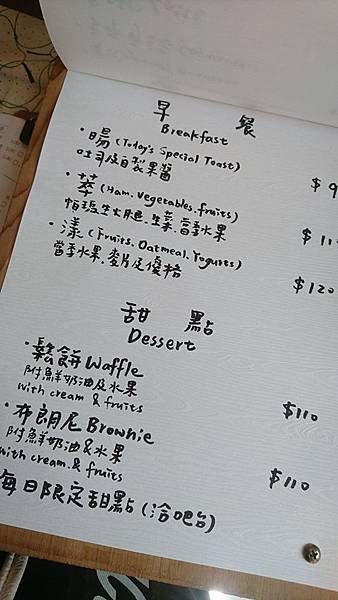 早 餐
Breakfast
·暘(Today's Special Toast)
吐司及自製果醬 $9
·萃(Ham.Vegetables.fruits)
帕瑪生火腿.生菜.當季水果 $11
·漾(Fruits.Oatmeal.Yogurts)
當季水果.麥片及優格 $120
甜 點
Dessert
·鬆餅Waffle
附鮮奶油及水果
with cream & fruits $110
·布朗尼Brownie
附鮮奶油&水果
with cream.& fruits $110
每日限定甜點(洽吧台)